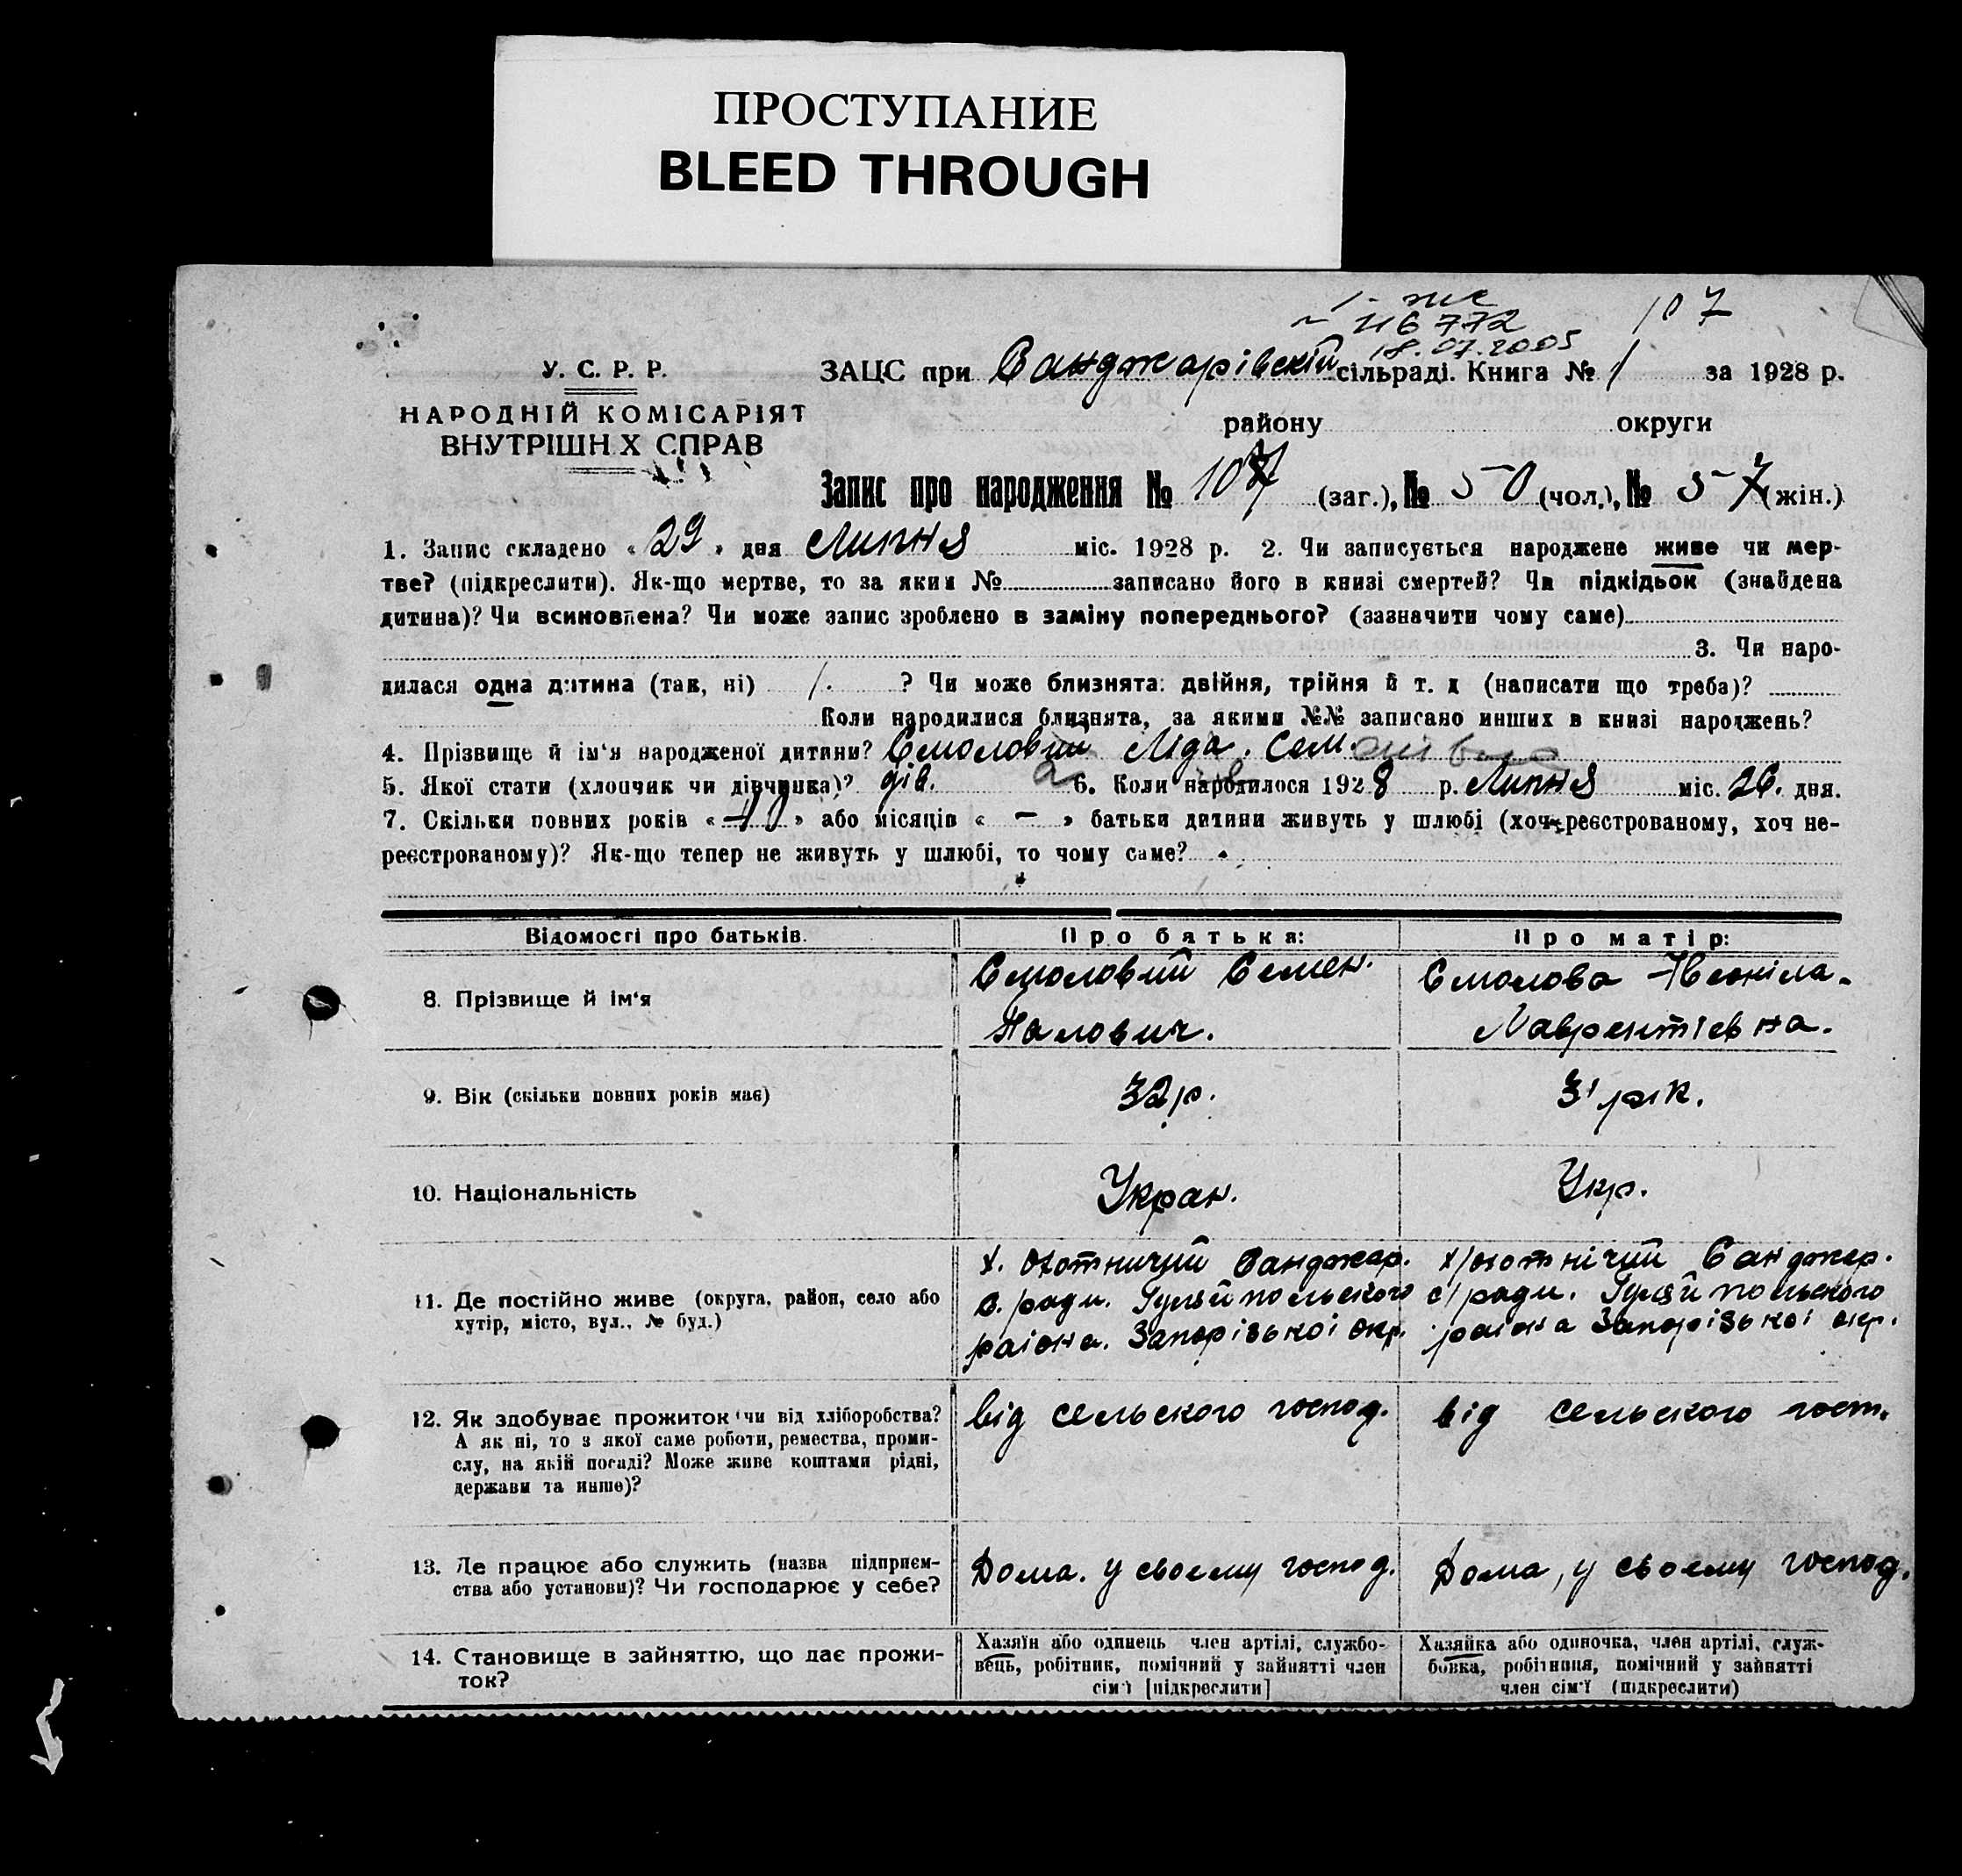 ПРОСТУПАНИЕ
BLEED THROUGH
107
216772
18.07.2005
У. С. Р. Р.
НАРОДНІЙ КОМІСАРІЯТ
ВНУТРІШН Х СПРАВ
ЗАЦС при Санджарівській сільраді. Книга № 1 за 1928 р.
району округи
Запис про народження № 107 (заг.), № 50 (чол.), № 57 (жін.)
1. Запис складено « 29 » дня Липня міс. 1928 р. 2. Чи записується народжене живе чи мер-
тве? (підкреслити). Як-що мертве, то за яким № записано його в книзі смертей? Чи підкідьок (знайдена
дитина)? Чи всиновлена? Чи може запис зроблено в заміну попереднього? (зазначити чому саме)
3. Чи наро-
дилася одна дитина (так, ні) 1. ? Чи може близнята: двійня, трійня й т. д (написати що треба)?
Коли народилися близнята, за якими №№ записано инших в книзі народжень?
4. Прізвище й ім'я народженої дитини? Смоловий Ліда. Сем.
5. Якої стати (хлопчик чи дівчинка)? дів. 6. Коли народилося 1928 р. Липня міс. 26. дня.
7. Скільки повних років « » або місяців « – » батьки дитини живуть у шлюбі (хоч реєстрованому, хоч не-
реєстрованому)? Як-що тепер не живуть у шлюбі, то чому саме?
Відомості про батьків. Про батька: Про матір:
8. Прізвище й ім'я
Смоловий Семен.
Палович.
Смолова Неоніла.
Лаврентієвна.
9. Вік (скільки повних років має) 32 р. 31 рік.
10. Національність Укран. Укр.
11. Де постійно живе (округа, район, село або
хутір, місто, вул., № буд.)
х. Охотничий Санджар.
с. ради. Гуляйпольского
раіона. Запорізької окр.
х/охотнічий Санджар.
с/ради. Гуляйпольского
раіона Запорізької окр.
12. Як здобуває прожиток чи від хліборобства?
А як ні, то з якої саме роботи, ремества, проми-
слу, на якій посаді? Може живе коштами рідні,
держави та инше)?
від сельского господ.
від сельского госп.
13. Де працює або служить (назва підприєм-
ства або установи)? Чи господарює у себе?
Дома. у своєму господ.
Дома, у своєму господ.
14. Становище в зайняттю, що дає прожи-
ток?
Хазяїн або одинець член артілі, службо-
вець, робітник, помічний у зайнятті член
сім'ї [підкреслити]
Хазяйка або одиночка, член артілі, служ-
бовка, робітниця, помічний у зайнятті
член сім'ї (підкреслити)